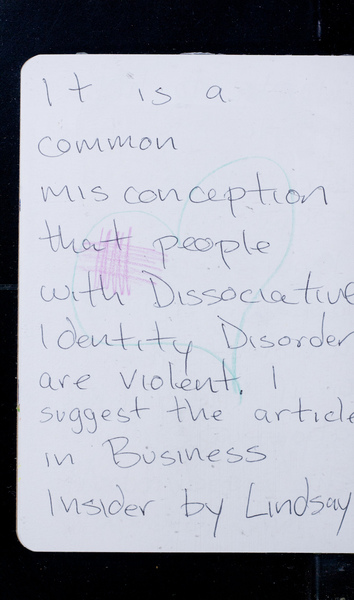 It is a
common
misconception
that people
with Dissociative
Identity Disorder
are violent. I
suggest the article
in Business
Insider by Lindsay